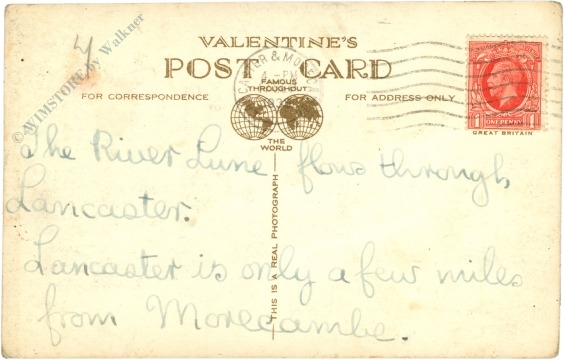 4
©WIMSTORE by Walkner
VALENTINE'S
POST CARD
FAMOUS
THROUGHOUT
THE
WORLD
FOR CORRESPONDENCE
FOR ADDRESS ONLY
4 - PM
1
ONE PENNY
GREAT BRITAIN
THIS IS A REAL PHOTOGRAPH
The River Lune flows through
Lancaster.
Lancaster is only a few miles
from Morecambe.